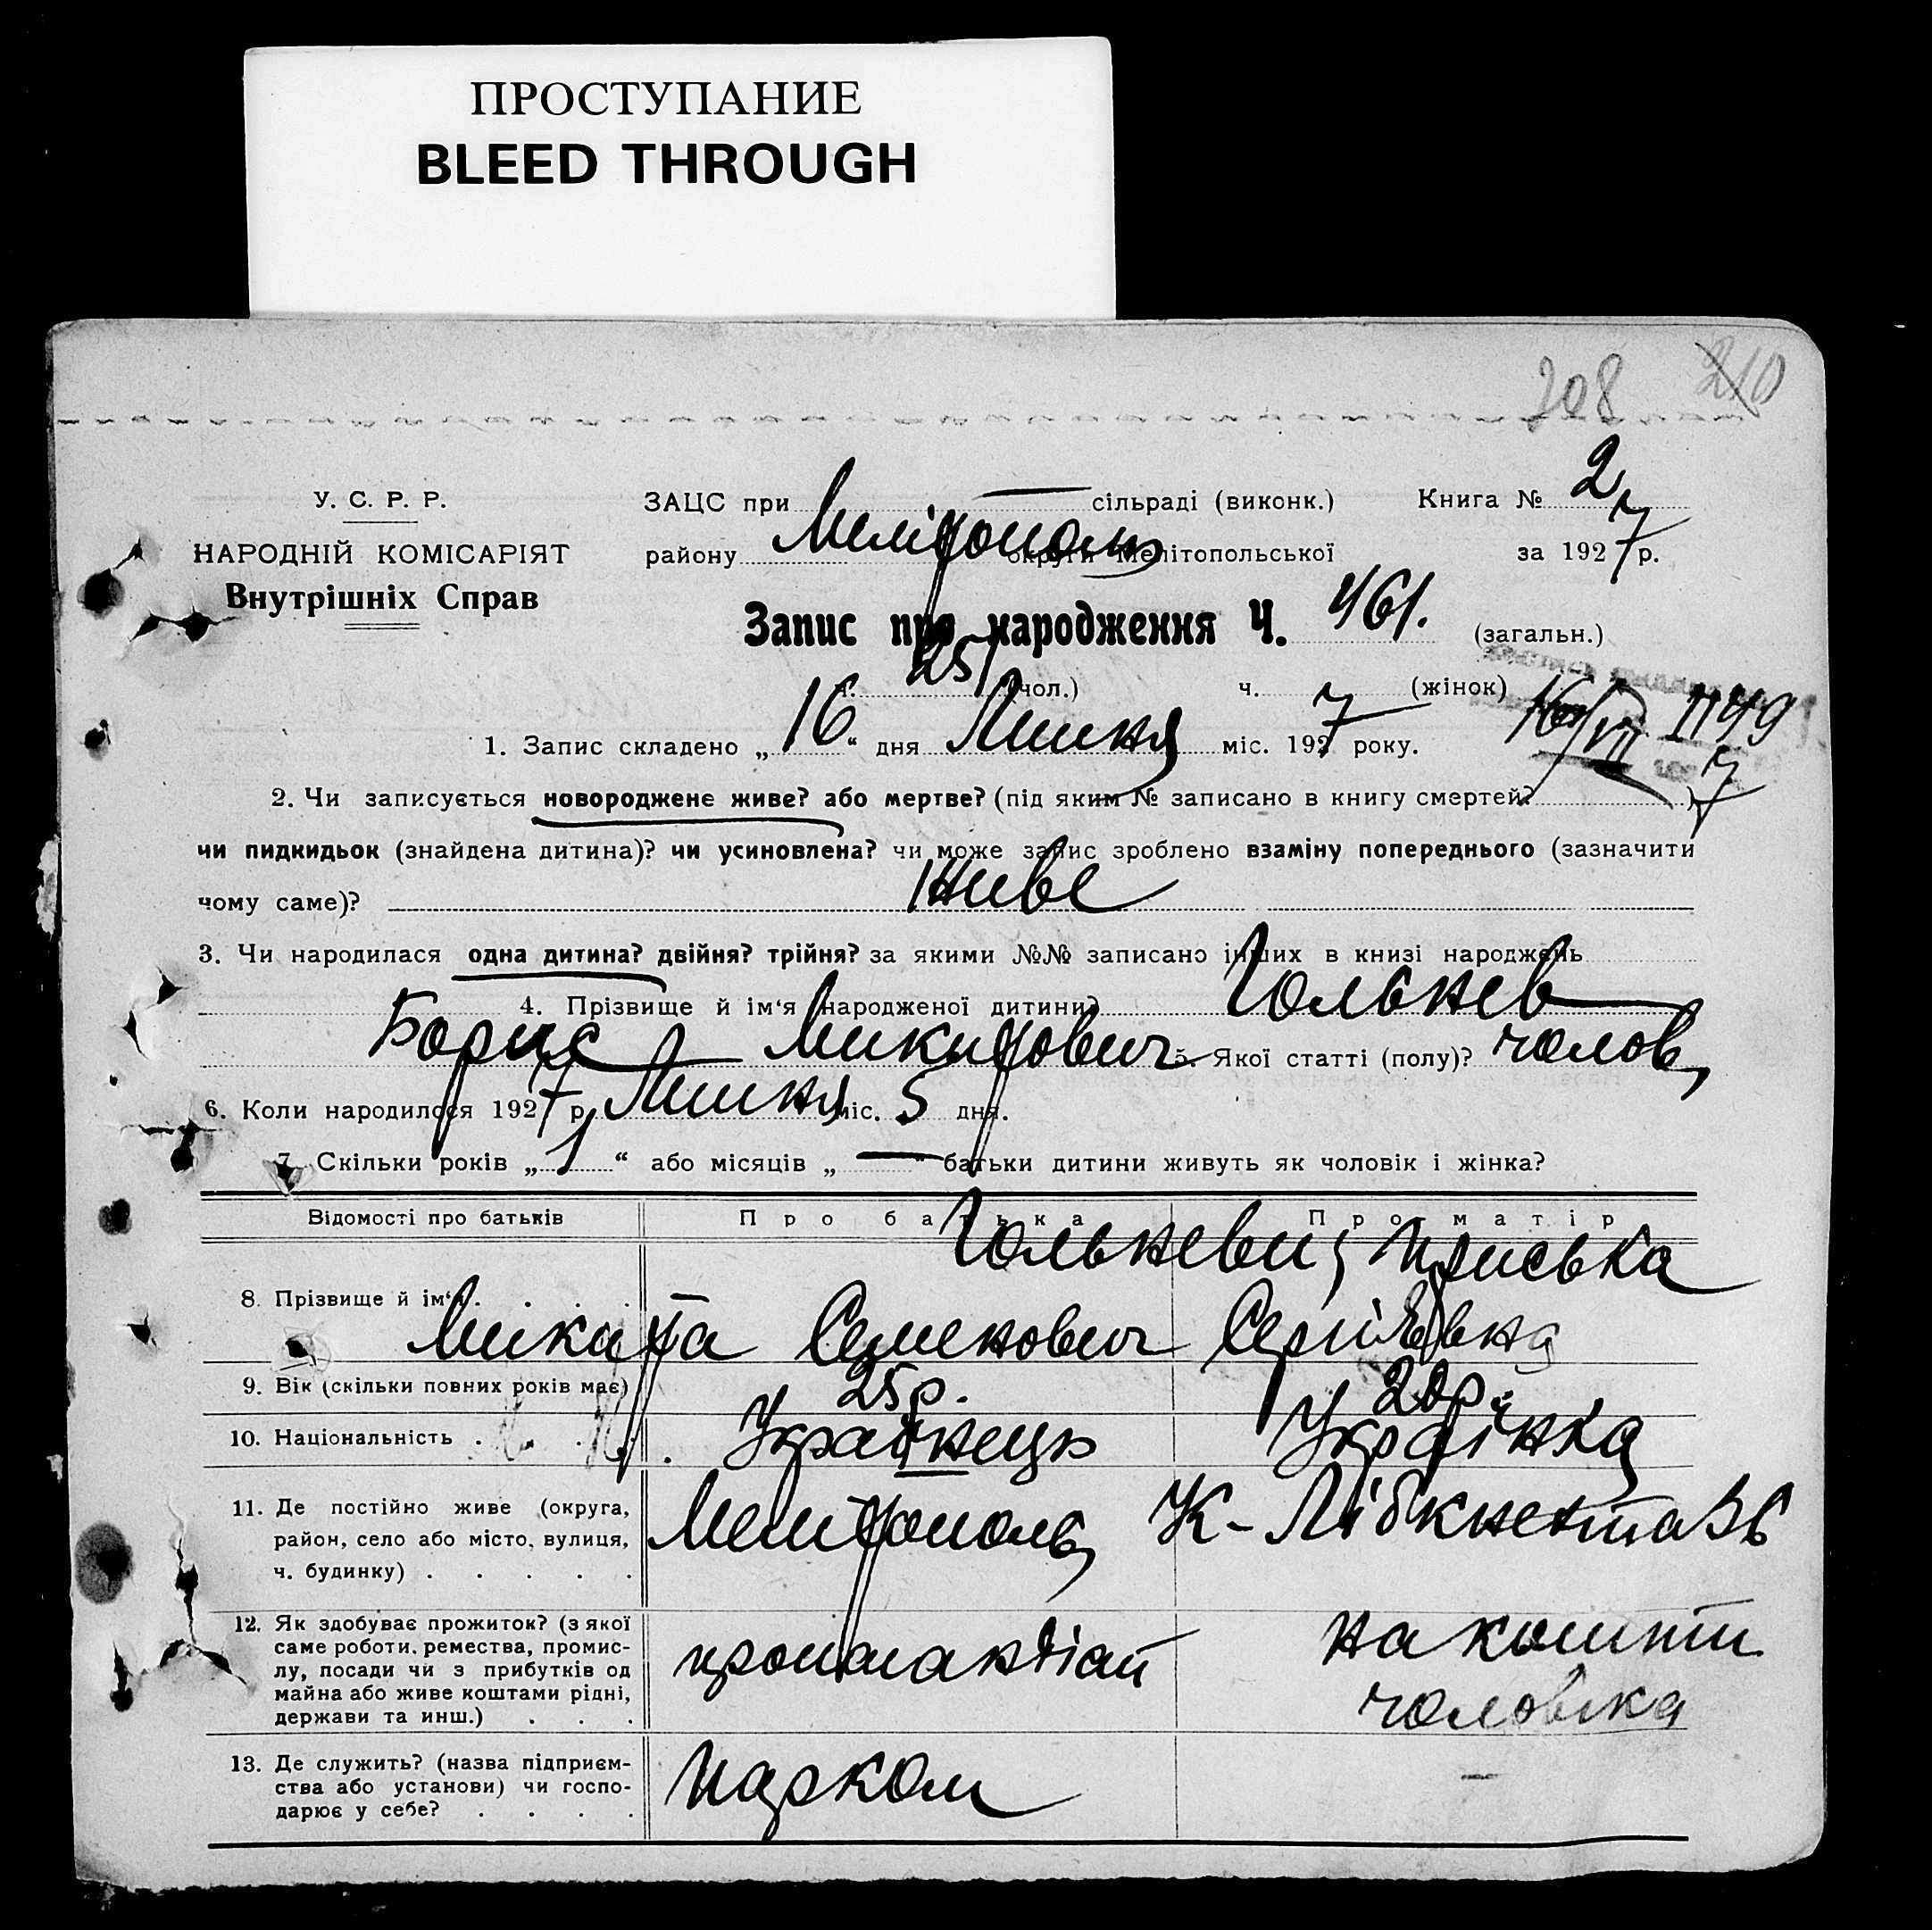 ПРОСТУПАНИЕ
BLEED THROUGH
208 210
У. С. Р. Р.
НАРОДНІЙ КОМІСАРІЯТ
Внутрішніх Справ
ЗАЦС при — сільраді (виконк.) Книга № 2
району Мелітополь округи Мелітопольської за 1927 р.
Запис про народження Ч. 461. (загальн.)
ч. 251 (чол.) ч. (жінок)
1. Запис складено „16“ дня Липня міс. 1927 року. 16/VII 1149
7
2. Чи записується новороджене живе? або мертве? (під яким № записано в книгу смертей? )
чи пидкидьок (знайдена дитина)? чи усиновлена? чи може запис зроблено взаміну попереднього (зазначити
чому саме)? живе
3. Чи народилася одна дитина? двійня? трійня? за якими №№ записано інших в книзі народжень
4. Прізвище й ім‘я народженої дитини? Гольнев
Борис Микитович 5. Якої статті (полу)? чолов
6. Коли народилося 1927 р. Липня міс. 5 дня.
7. Скільки років „1“ або місяців „—“ батьки дитини живуть як чоловік і жінка?
Відомості про батьків Про батька Про матір
Гольневи Приська
8. Прізвище й ім‘я . . . .
Микита Семенович Сергіївна
9. Вік (скільки повних років має) 25 р. 20 р.
10. Національність . . . . Українець Українка
11. Де постійно живе (округа,
район, село або місто, вулиця,
ч. будинку) . . . . .
Мелітополь К-Лібкнехта 36
12. Як здобуває прожиток? (з якої
саме роботи, ремества, промис-
лу, посади чи з прибутків од
майна або живе коштами рідні,
держави та инш.) . . .
на кошти
чоловіка
13. Де служить? (назва підприєм-
ства або установи) чи госпо-
дарює у себе? . . . .
Парком —